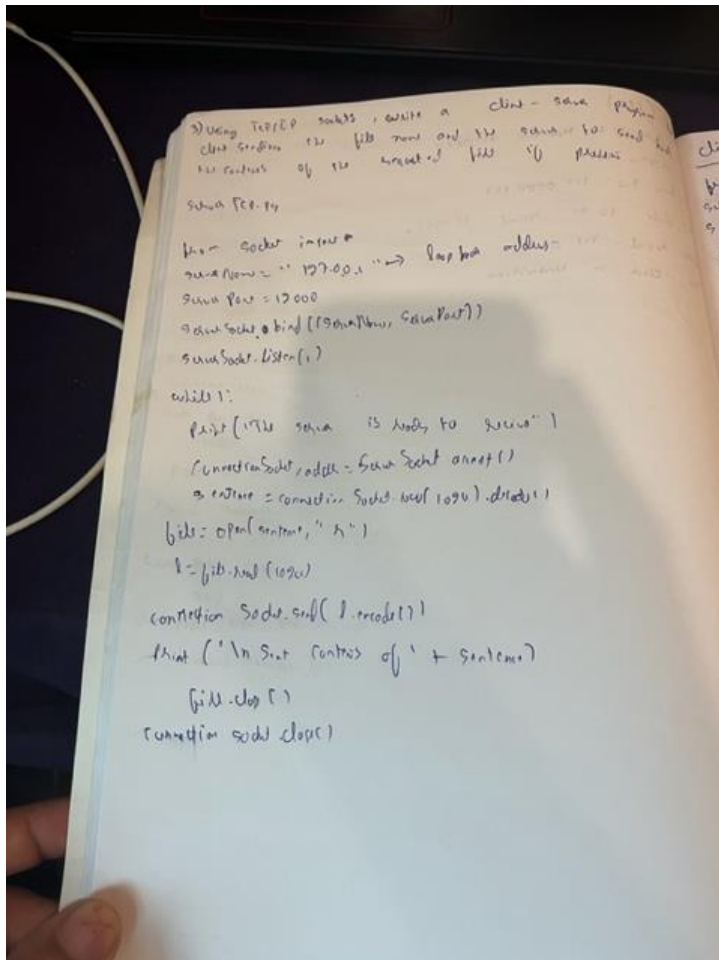 3) Using TCP/IP sockets, write a client - server program
client sending the file name and the server to send back
the contents of the requested file if present
server TCP.py
from socket import *
serverName = "127.0.0.1" → loop back address
server Port = 12000
serverSocket.bind((serverName, serverPort))
serverSocket.listen(1)
while 1:
print("The server is ready to receive")
connectionSocket, addr = serverSocket accept()
sentence = connection Socket.recv(1024).decode()
file = open(sentence, "r")
l = file.read(1024)
connection Socket.send(l.encode())
print ('\n Sent contents of ' + sentence)
file.close()
connection socket.close()